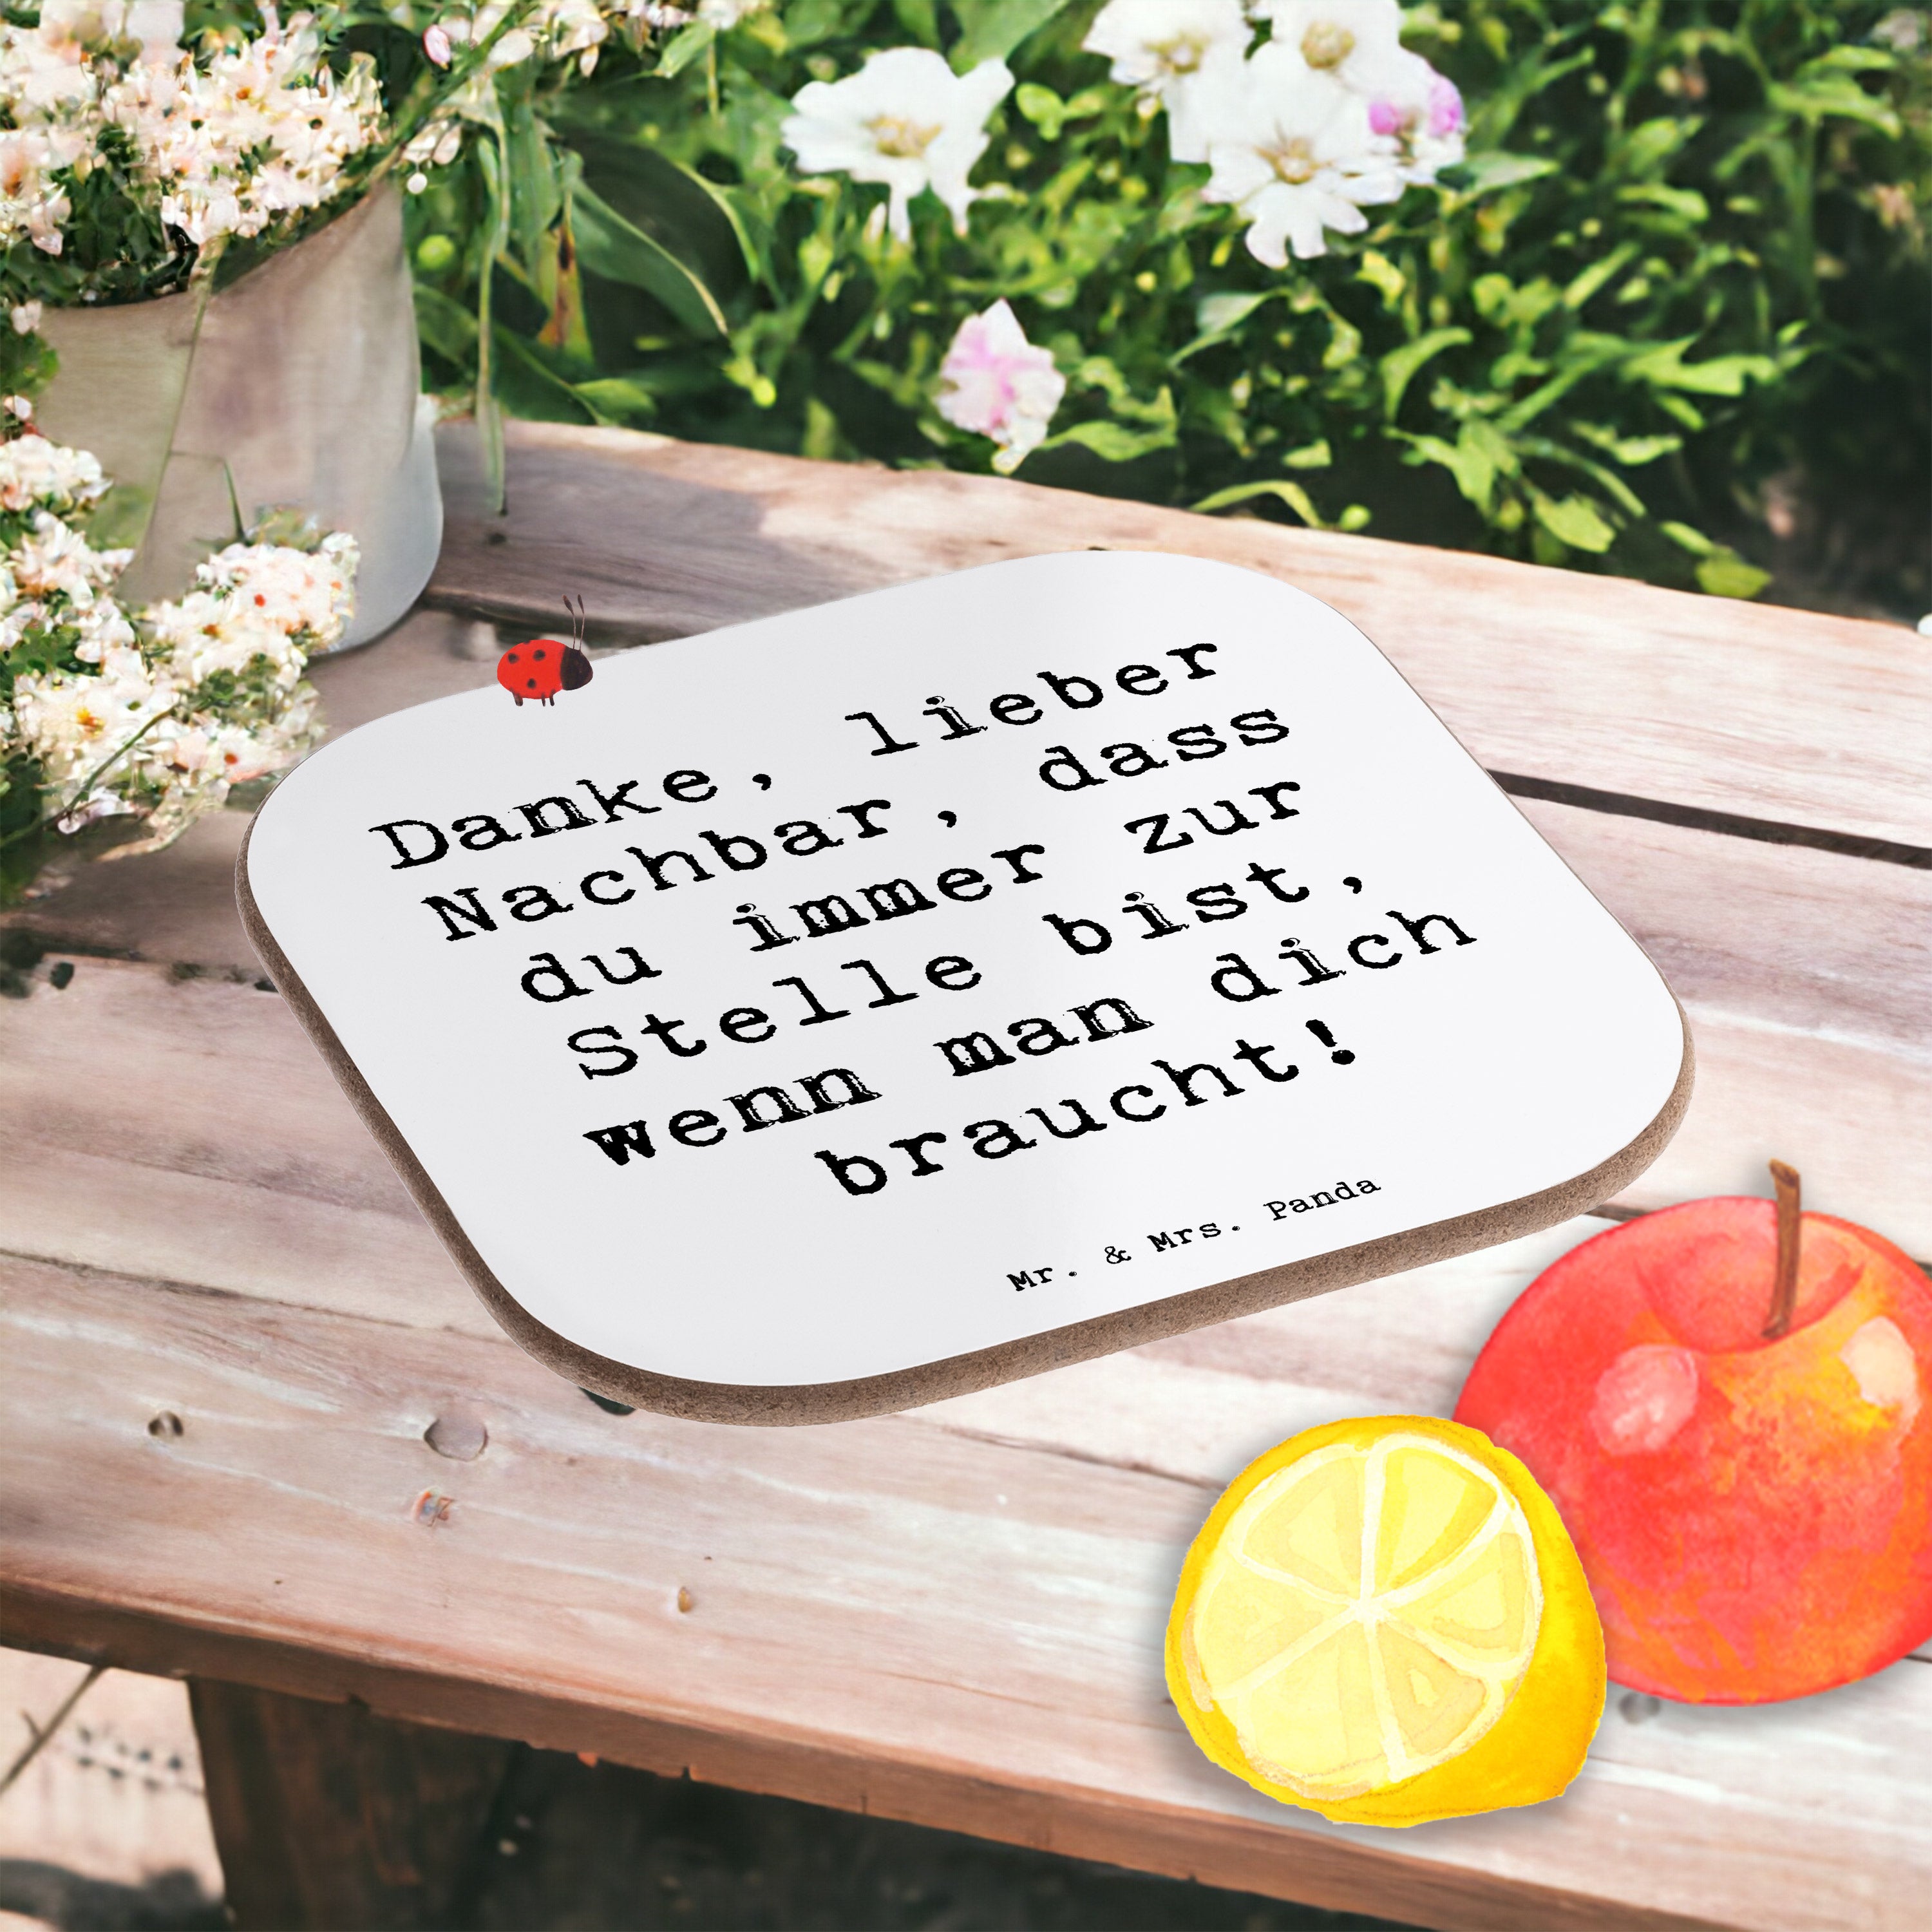 Danke, lieber
Nachbar, dass
du immer zur
Stelle bist,
wenn man dich
braucht!
Mr. & Mrs. Panda